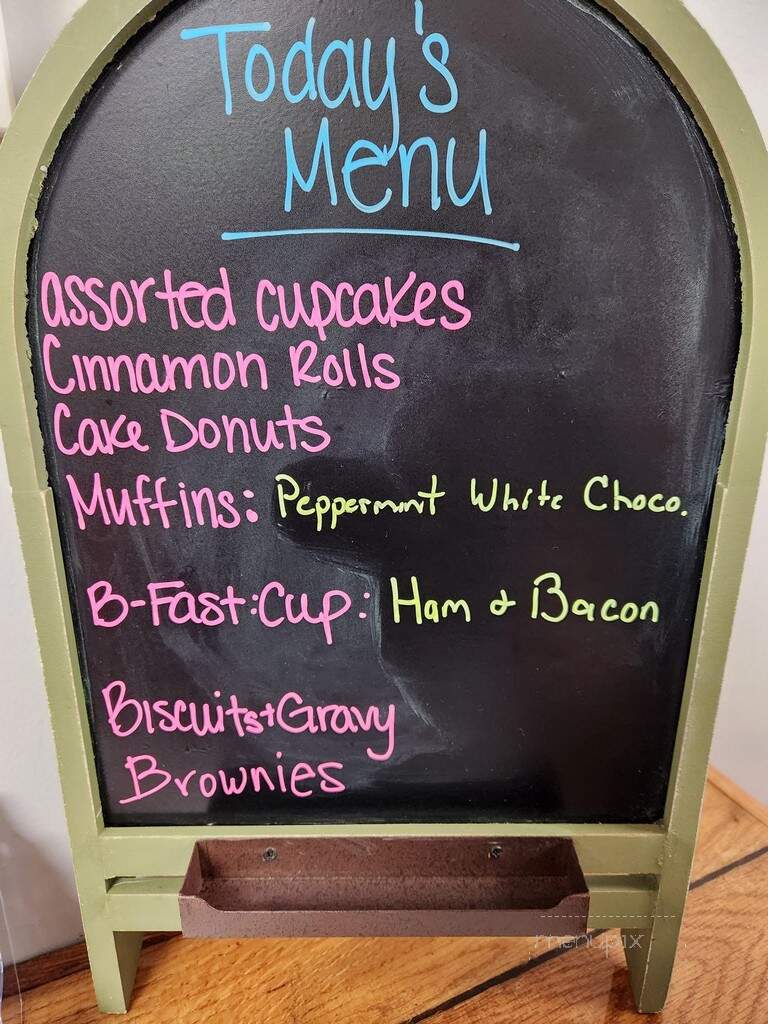 Today's
Menu
assorted cupcakes
Cinnamon Rolls
Cake Donuts
Muffins: Peppermint White Choco.
B-Fast:Cup: Ham & Bacon
Biscuits+Gravy
Brownies
menupix